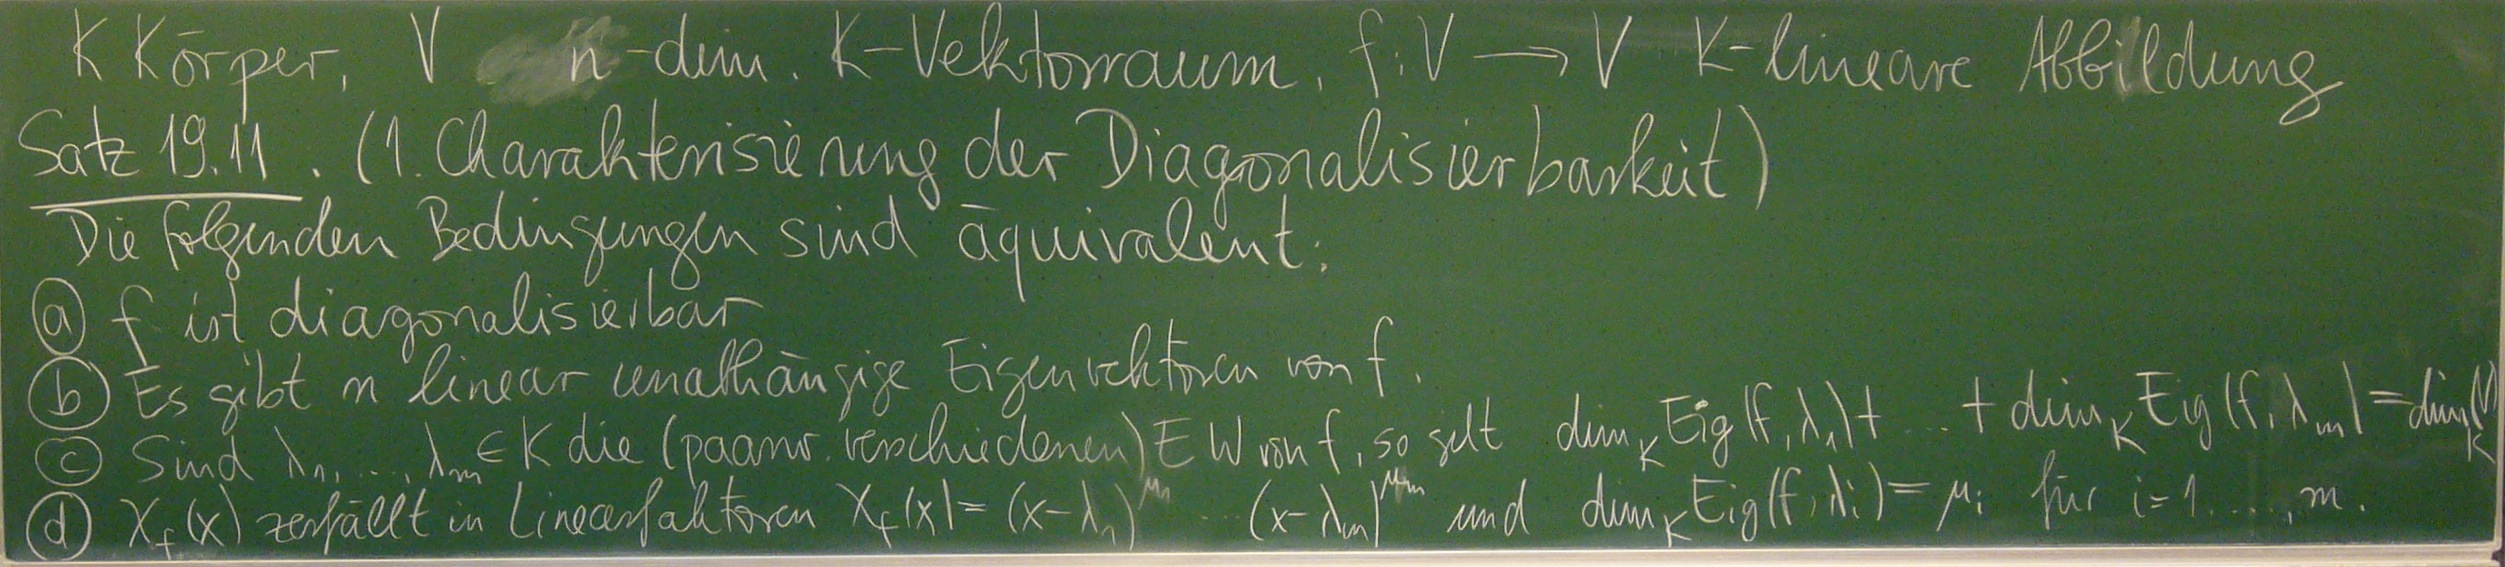 K Körper, V n-dim. K-Vektorraum, f: V → V K-lineare Abbildung
Satz 19.11. (1. Charakterisierung der Diagonalisierbarkeit)
Die folgenden Bedingungen sind äquivalent:
(a) f ist diagonalisierbar
(b) Es gibt n linear unabhängige Eigenvektoren von f.
(c) Sind λ₁, ..., λₘ ∈ K die (paarw. verschiedenen) EW von f, so gilt dim_K Eig(f, λ₁) + ... + dim_K Eig(f, λₘ) = dim_K(V)
(d) χ_f(x) zerfällt in Linearfaktoren χ_f(x) = (x-λ₁)^μ₁ ... (x-λₘ)^μₘ und dim_K Eig(f, λᵢ) = μᵢ für i=1, ..., m.